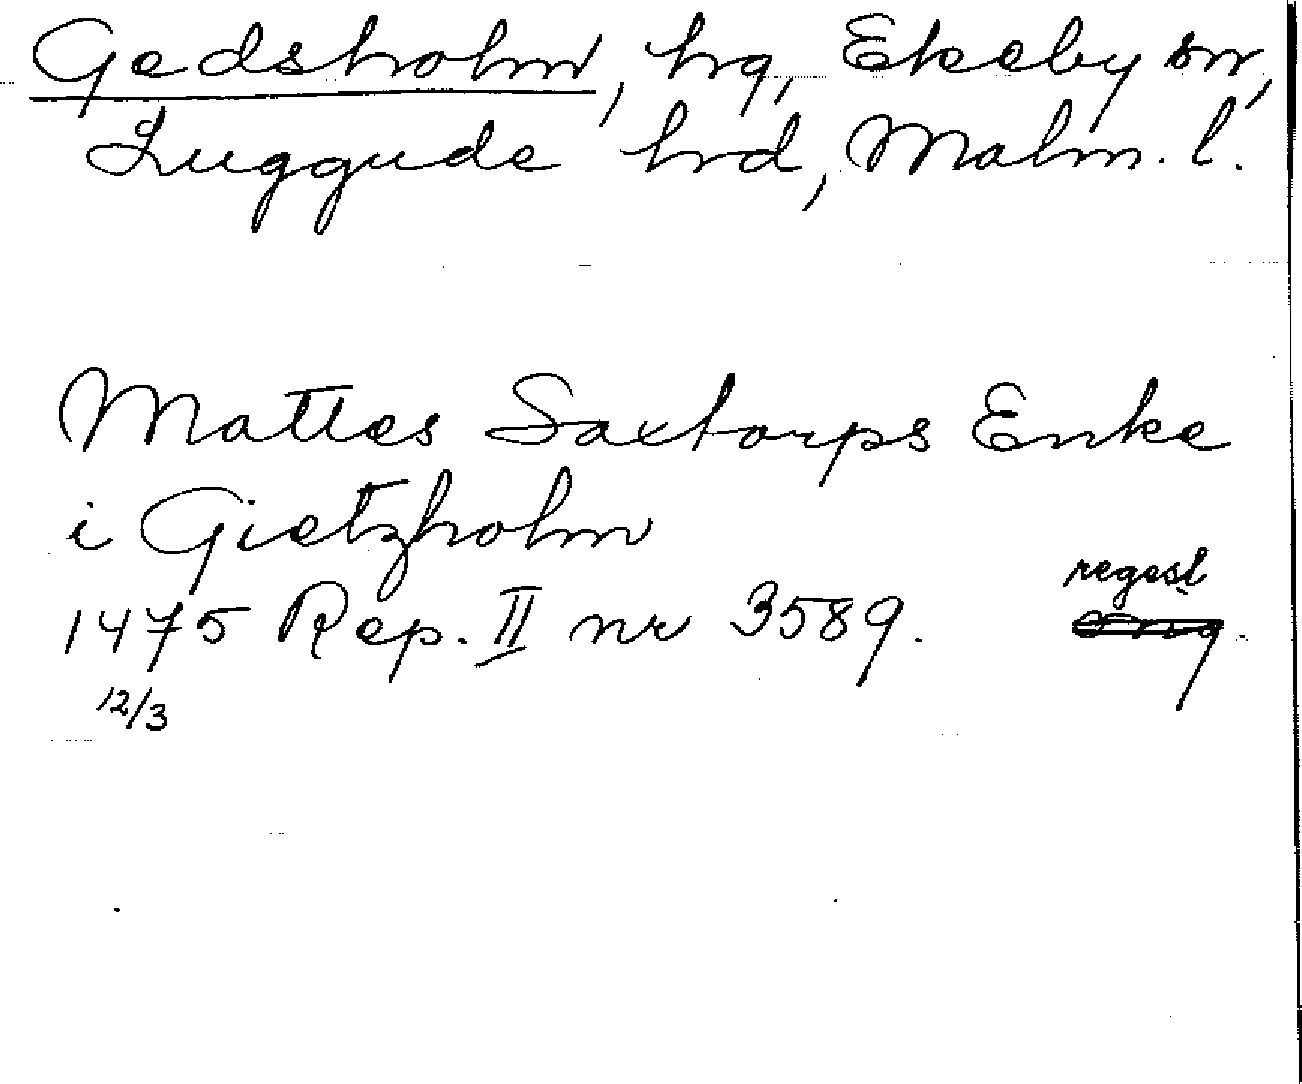 Gedsholm, hg, Ekeby sn,
Luggude hrd, Malm. l.
Mattes Saxtorps Enke
i Gietzholm
regest
1475 Rep. II nr 3589.
12/3